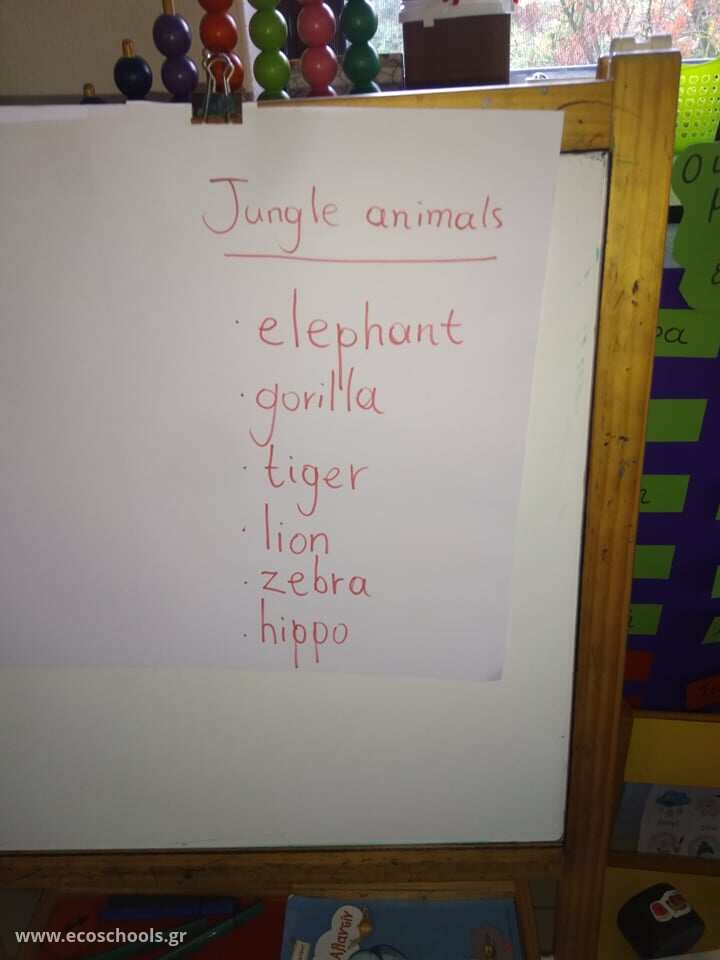 Jungle animals
· elephant
· gorilla
· tiger
· lion
· zebra
· hippo
Αλαντίν
www.ecoschools.gr